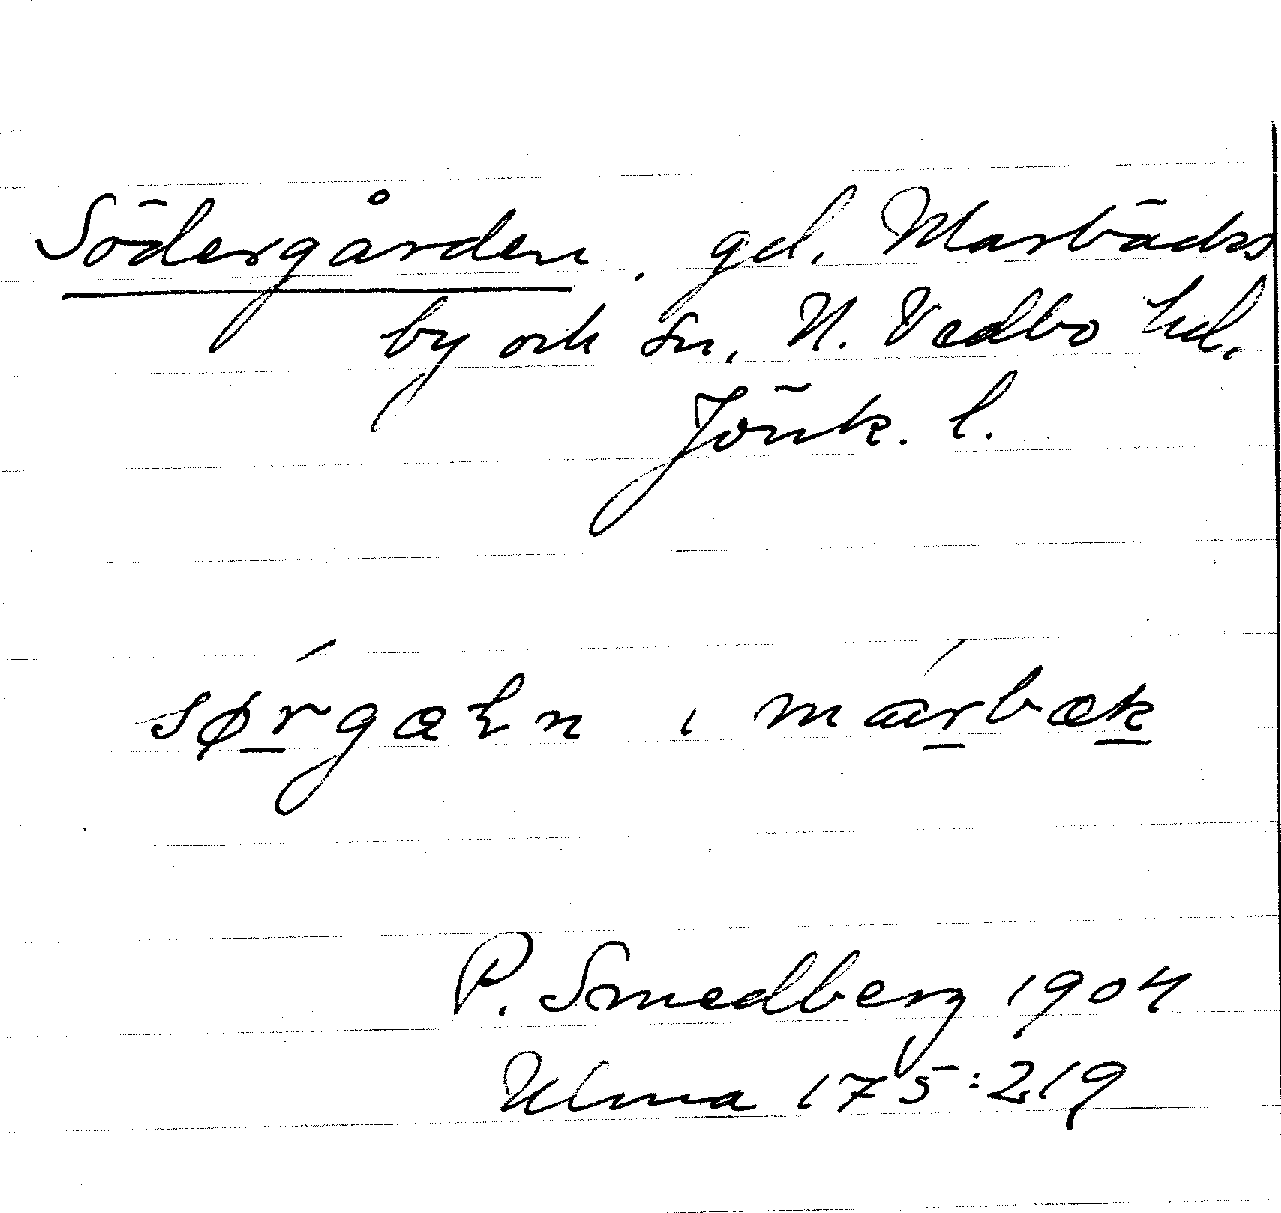 Södergården, gd. Marbäcks
by och sn, N. Vedbo hd.
Jönk. l.
sørgæɫn i marbæk
P. Smedberg 1904
Ulma 175:219